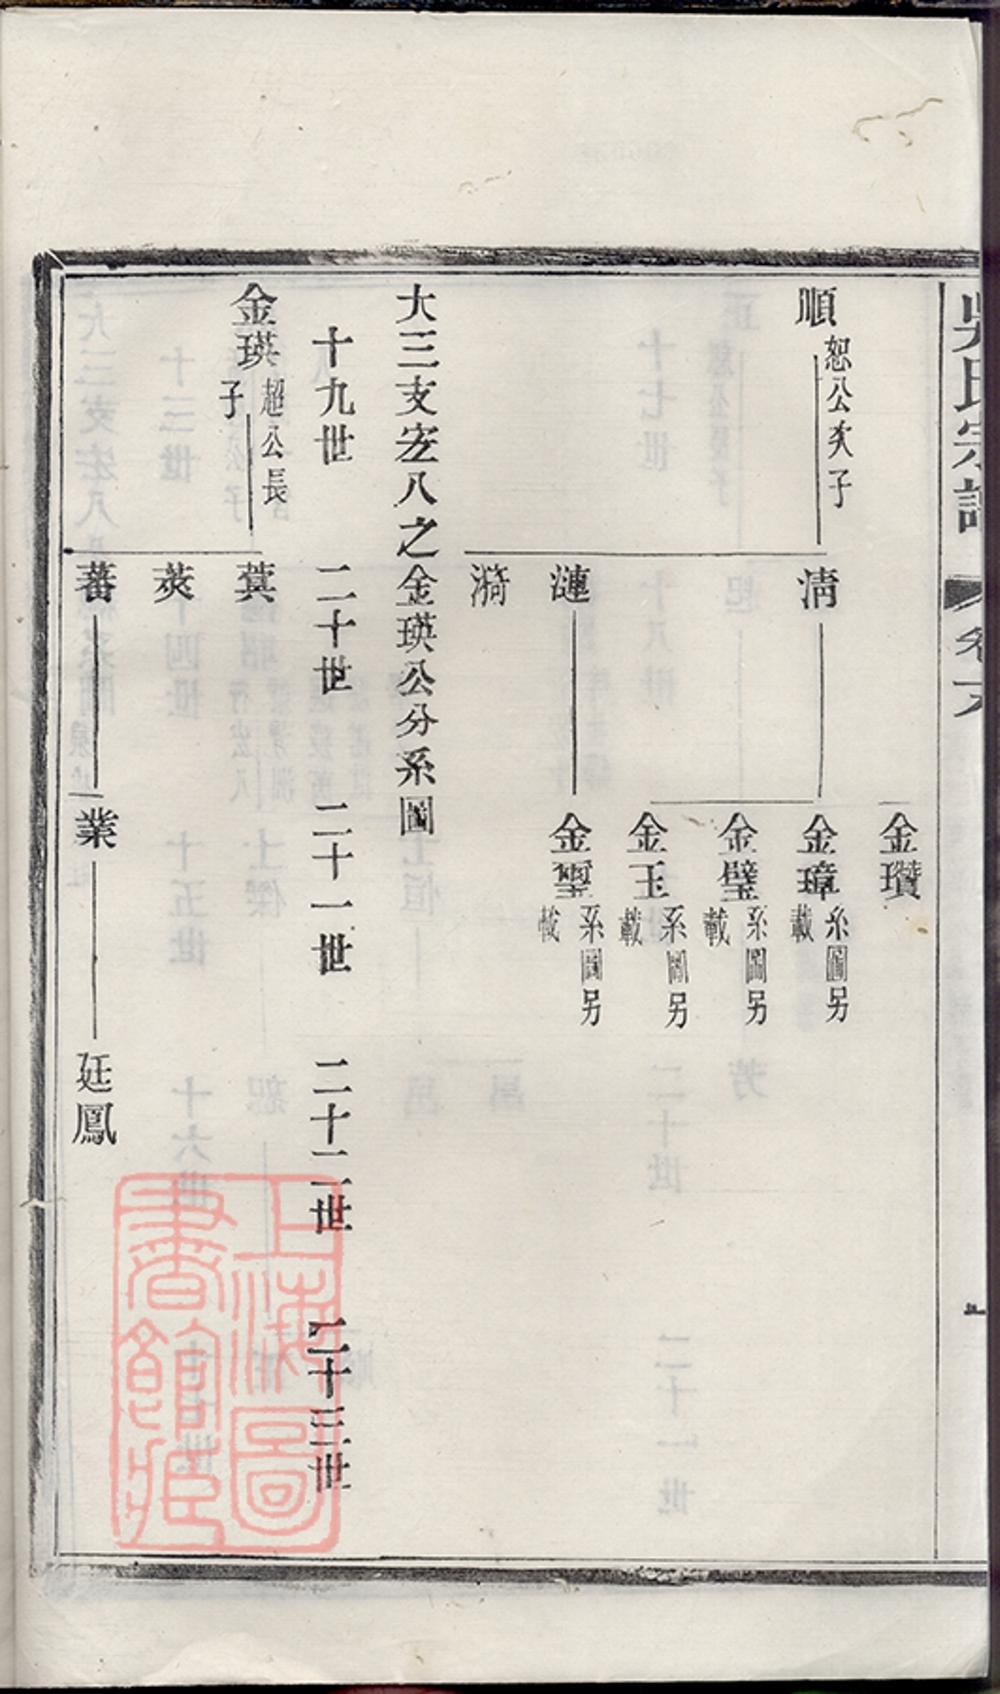 吳氏宗譜 卷六
金瓚
順 恕公次子
清
金璋 系圖另載
金璧 系圖另載
金玉 系圖另載
漣
金璽 系圖另載
漪
大三支宏八之金瑛公分系圖
十九世 二十世 二十一世 二十二世 二十三世
金瑛 超公長子
蓂
莢
蕃 業 廷鳳
上海圖書館藏